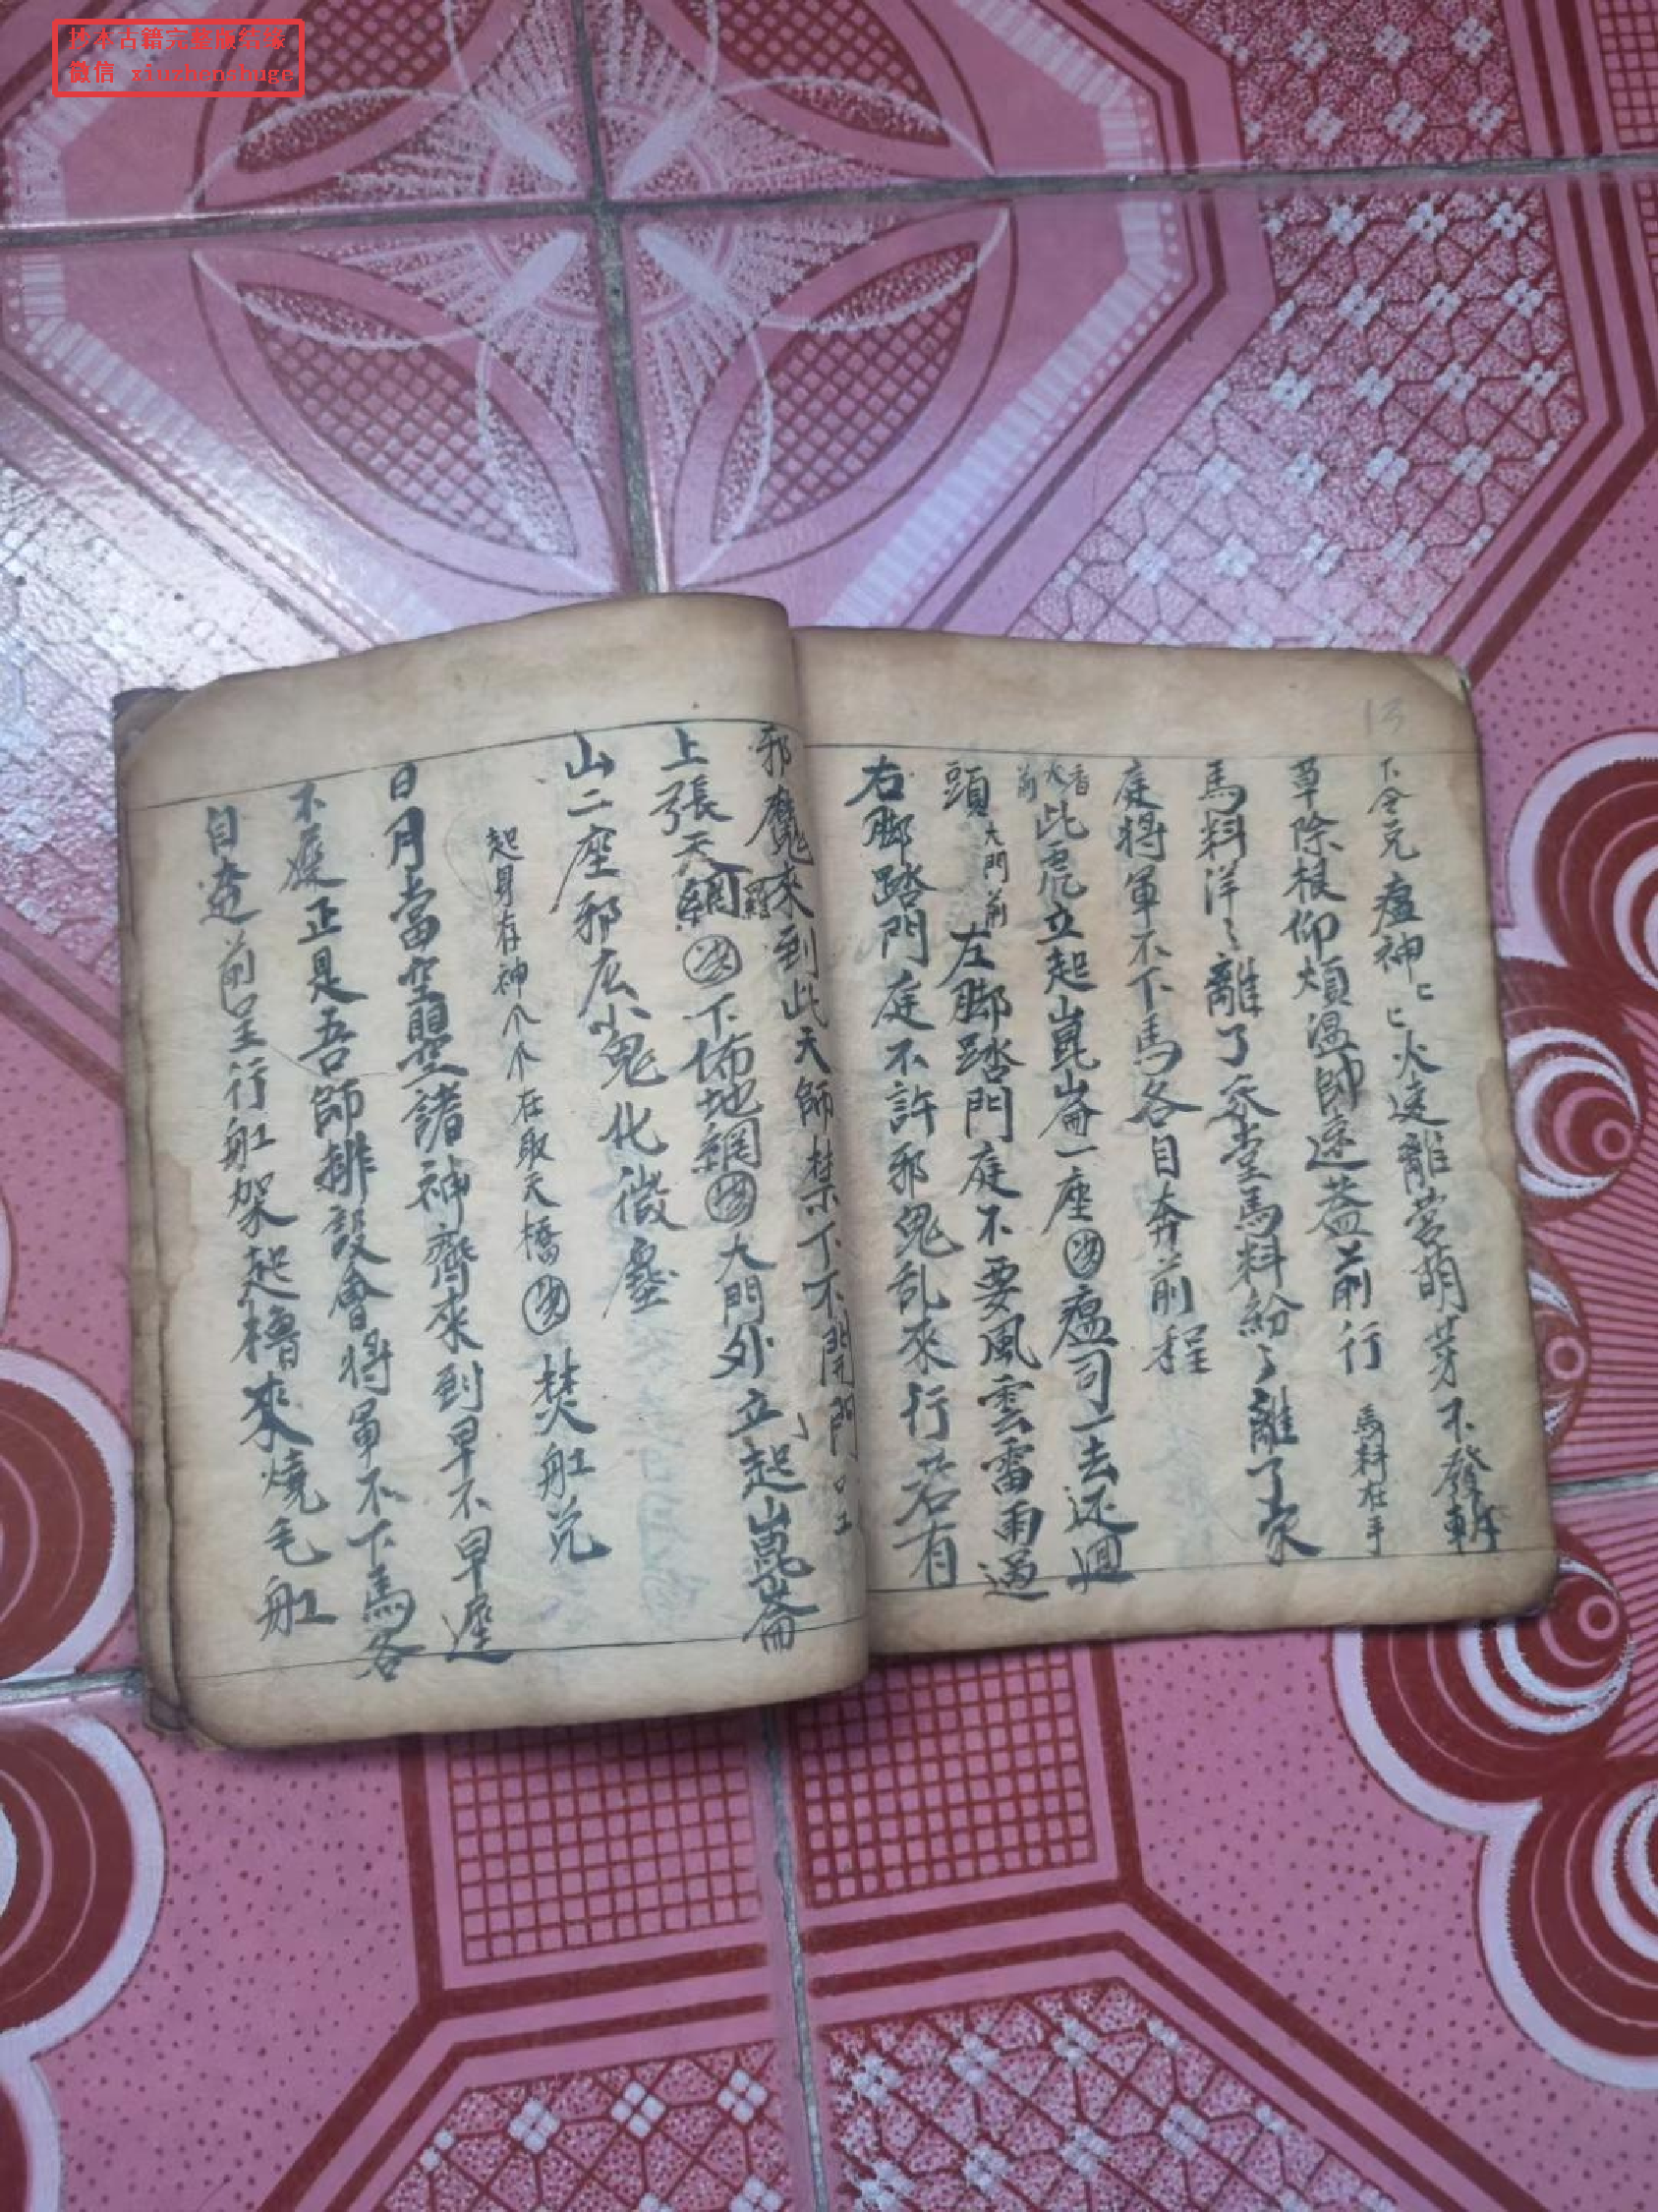 抄本古籍完整版结缘
微信 xiuzhenshuge
13
下令元瘟神火速離营萌芽不發斬
草除根仰煩溫帥速前行 馬料在手
馬料洋〻離了堂馬料紛〻離了家
庭將軍不下馬各自奔前程
香火前 此處立起崑崙一座瘟司一去还週
頭 大門前 左脚踏門庭不要風雲雷雨過
右脚踏門庭不許邪鬼乱來行若有
邪魔來到此天師禁下不開門
上張天羅網下佈地網大門外立起崑崙
山二座邪広小鬼化微塵
起身存神 在取天橋 焚舡
日月當空照諸神齊來到早不早
不正是吾師排設會將軍不下馬各
自 前 行舡架起櫓來燒毛舡